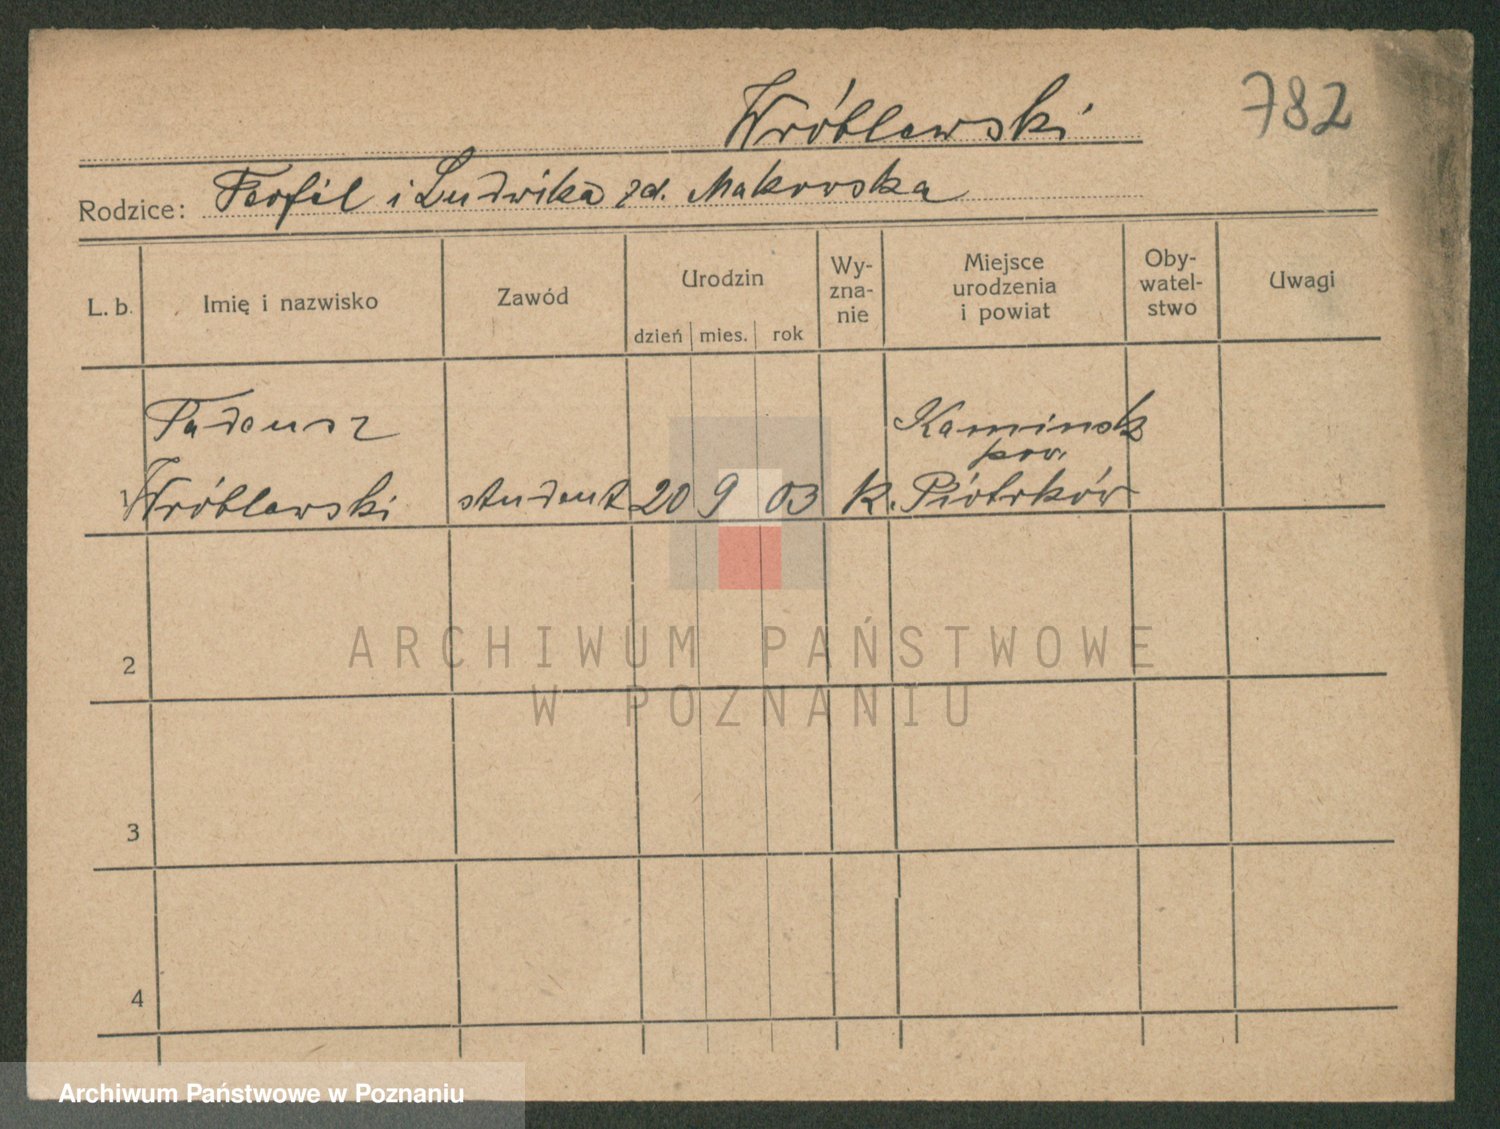 Wróblewski
782
Rodzice: Teofil i Ludwika zd. Makowska
L. b.
Imię i nazwisko
Zawód
Urodzin
dzień mies. rok
Wy-
zna-
nie
Miejsce
urodzenia
i powiat
Oby-
watel-
stwo
Uwagi
Tadeusz
Wróblewski
student
20
9
03
k.
Kaminsk
pow.
Piotrków
1
2
3
4
ARCHIWUM PAŃSTWOWE
W POZNANIU
Archiwum Państwowe w Poznaniu